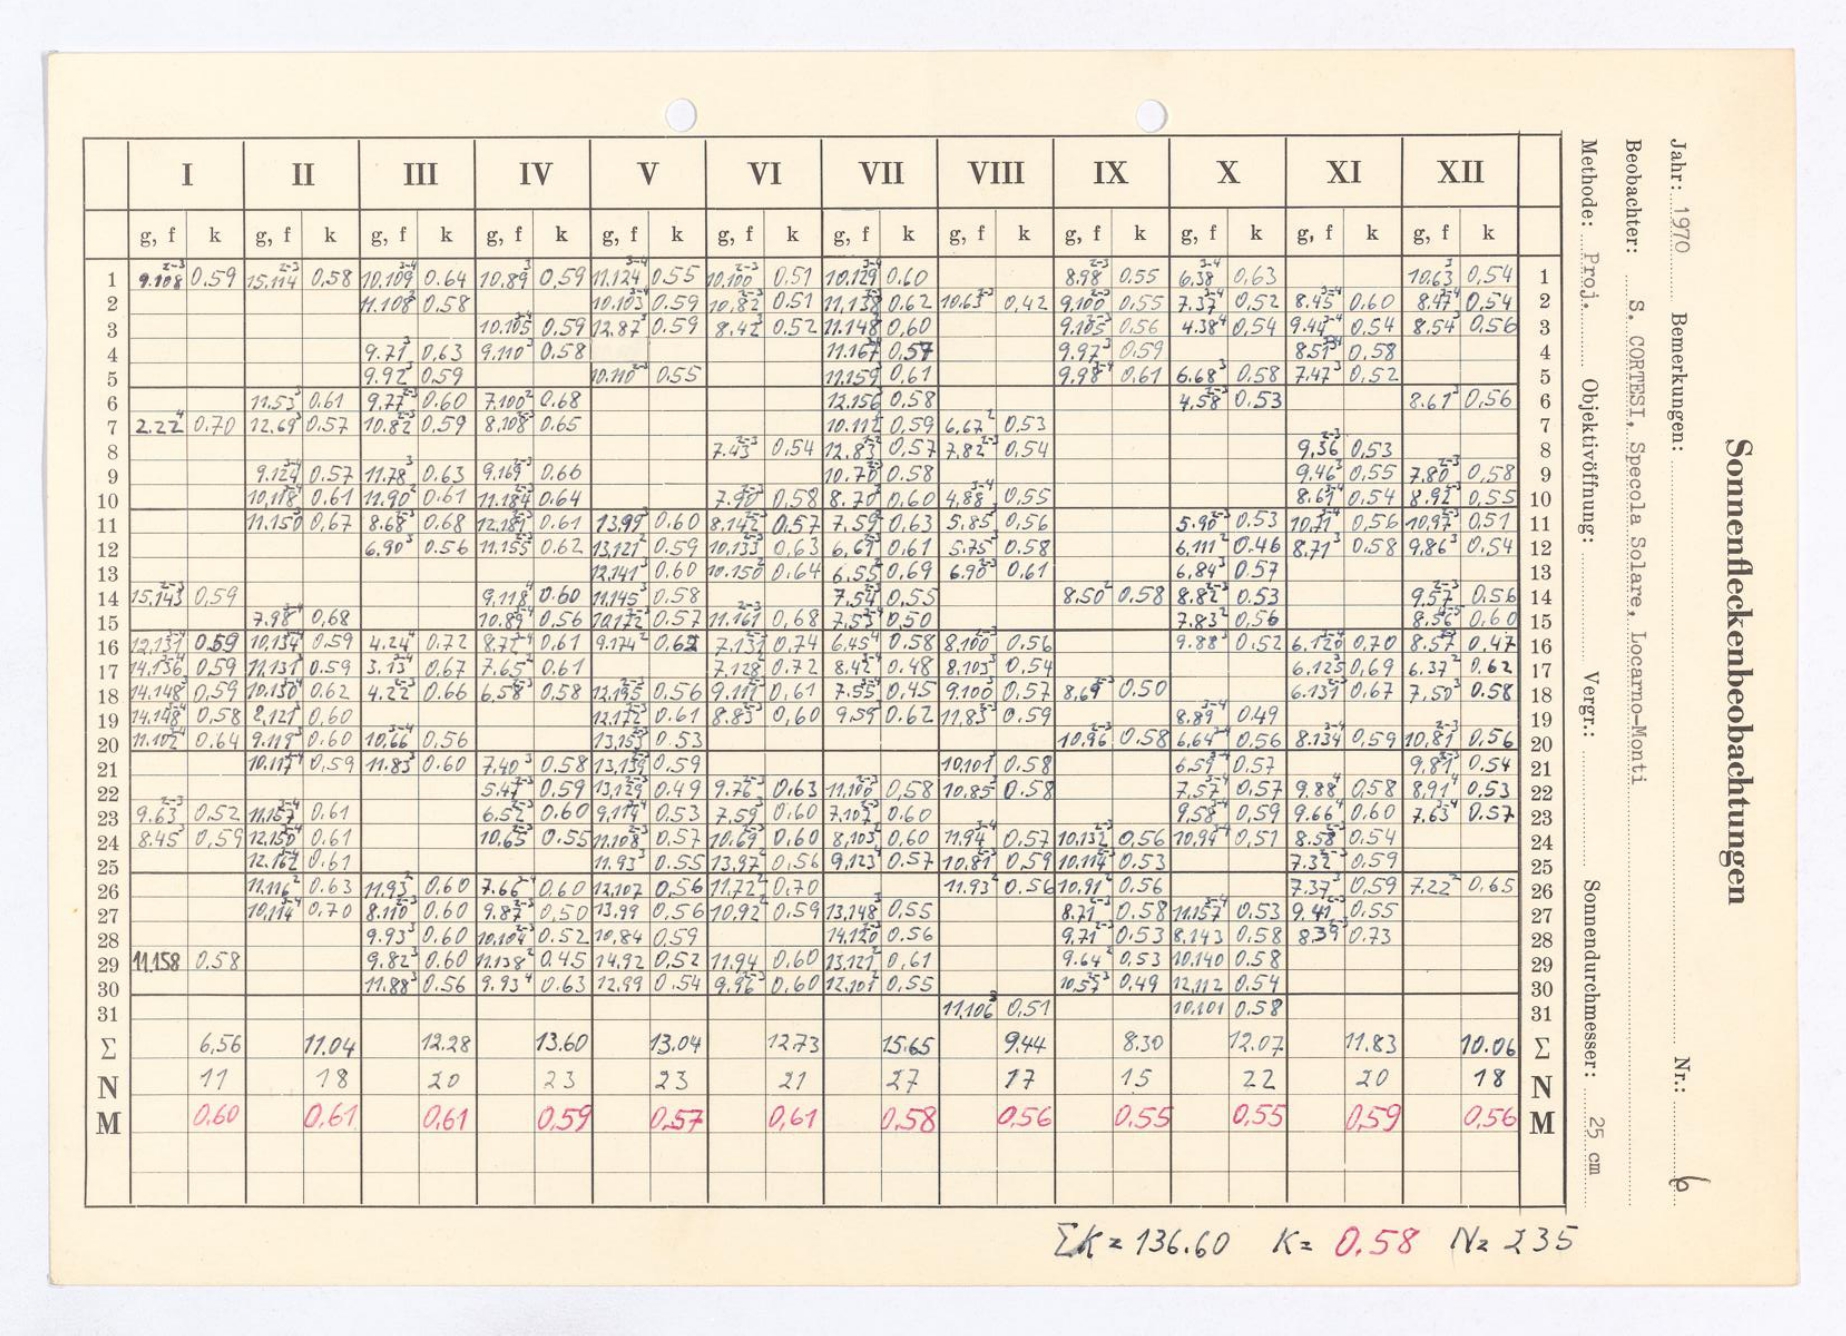 Sonnenfleckenbeobachtungen
Jahr: 1970 Bemerkungen: Nr.: 6
Beobachter: S. CORTESI, Specola Solare, Locarno-Monti
Methode: Proj. Objektivöffnung: Vergr.: Sonnendurchmesser: 25 cm
I II III IV V VI VII VIII IX X XI XII
g, f k g, f k g, f k g, f k g, f k g, f k g, f k g, f k g, f k g, f k g, f k g, f k
1 9.108 0.59 15.114 0.58 10.109 0.64 10.89 0.59 11.124 0.55 10.100 0.51 10.129 0.60 8.98 0.55 6.38 0.63 10.63 0.54 1
2 11.108 0.58 10.103 0.59 10.82 0.51 11.138 0.62 10.63 0.42 9.100 0.55 7.37 0.52 8.45 0.60 8.47 0.54 2
3 10.105 0.59 12.87 0.59 8.42 0.52 11.148 0.60 9.105 0.56 4.38 0.54 9.44 0.54 8.54 0.56 3
4 9.71 0.63 9.110 0.58 11.167 0.57 9.97 0.59 8.51 0.58 4
5 9.92 0.59 10.110 0.55 11.159 0.61 9.98 0.61 6.68 0.58 7.47 0.52 5
6 11.53 0.61 9.77 0.60 7.100 0.68 12.156 0.58 4.58 0.53 8.61 0.56 6
7 2.22 0.70 12.69 0.57 10.82 0.59 8.108 0.65 10.112 0.59 6.67 0.53 7
8 7.43 0.54 12.83 0.57 7.82 0.54 9.36 0.53 8
9 9.124 0.57 11.78 0.63 9.169 0.66 10.70 0.58 9.46 0.55 7.80 0.58 9
10 10.118 0.61 11.90 0.61 11.184 0.64 7.90 0.58 8.70 0.60 4.88 0.55 8.67 0.54 8.92 0.55 10
11 11.150 0.67 8.68 0.68 12.187 0.61 13.99 0.60 8.142 0.57 7.59 0.63 5.85 0.56 5.90 0.53 10.71 0.56 10.97 0.51 11
12 6.90 0.56 11.155 0.62 13.121 0.59 10.133 0.63 6.61 0.61 5.75 0.58 6.111 0.46 8.71 0.58 9.86 0.54 12
13 12.141 0.60 10.150 0.64 6.55 0.69 6.90 0.61 6.84 0.57 13
14 15.143 0.59 9.118 0.60 11.145 0.58 7.54 0.55 8.50 0.58 8.82 0.53 9.57 0.56 14
15 7.98 0.68 10.89 0.56 10.172 0.57 11.161 0.68 7.53 0.50 7.83 0.56 8.56 0.60 15
16 12.131 0.59 10.134 0.59 4.24 0.72 8.72 0.61 9.174 0.62 7.131 0.74 6.45 0.58 8.100 0.56 9.88 0.52 6.120 0.70 8.57 0.47 16
17 14.156 0.59 11.131 0.59 3.13 0.67 7.65 0.61 7.128 0.72 8.42 0.48 8.103 0.54 6.125 0.69 6.37 0.62 17
18 14.148 0.59 10.130 0.62 4.22 0.66 6.58 0.58 12.195 0.56 9.111 0.61 7.55 0.45 9.100 0.57 8.69 0.50 6.131 0.67 7.50 0.58 18
19 14.148 0.58 8.121 0.60 12.172 0.61 8.83 0.60 9.59 0.62 11.83 0.59 8.89 0.49 19
20 11.102 0.64 9.119 0.60 10.66 0.56 13.153 0.53 10.96 0.58 6.64 0.56 8.134 0.59 10.81 0.56 20
21 10.117 0.59 11.83 0.60 7.40 0.58 13.139 0.59 10.101 0.58 6.59 0.57 9.81 0.54 21
22 5.47 0.59 13.129 0.49 9.76 0.63 11.100 0.58 10.85 0.58 7.57 0.57 9.88 0.58 8.91 0.53 22
23 9.63 0.52 11.157 0.61 6.52 0.60 9.114 0.53 7.59 0.60 7.107 0.60 9.58 0.59 9.66 0.60 7.63 0.57 23
24 8.45 0.59 12.150 0.61 10.65 0.55 11.108 0.57 10.69 0.60 8.103 0.60 11.94 0.57 10.132 0.56 10.94 0.51 8.58 0.54 24
25 12.162 0.61 11.93 0.55 13.97 0.56 9.123 0.57 10.81 0.59 10.114 0.53 7.32 0.59 25
26 11.116 0.63 11.93 0.60 7.66 0.60 12.107 0.56 11.72 0.70 11.93 0.56 10.91 0.56 7.37 0.59 7.22 0.65 26
27 10.114 0.70 8.110 0.60 9.87 0.50 13.99 0.56 10.92 0.59 13.148 0.55 8.71 0.58 11.157 0.53 9.41 0.55 27
28 9.93 0.60 10.104 0.52 10.84 0.59 14.120 0.56 9.71 0.53 8.143 0.58 8.39 0.73 28
29 11.158 0.58 9.82 0.60 11.138 0.45 14.92 0.52 11.94 0.60 13.121 0.61 9.64 0.53 10.140 0.58 29
30 11.88 0.56 9.93 0.63 12.99 0.54 9.96 0.60 12.101 0.55 10.57 0.49 12.112 0.54 30
31 11.106 0.51 10.101 0.58 31
Σ 6.56 11.04 12.28 13.60 13.04 12.73 15.65 9.44 8.30 12.07 11.83 10.06 Σ
N 11 18 20 23 23 21 27 17 15 22 20 18 N
M 0.60 0.61 0.61 0.59 0.57 0.61 0.58 0.56 0.55 0.55 0.59 0.56 M
ΣK = 136.60 K = 0.58 N = 235